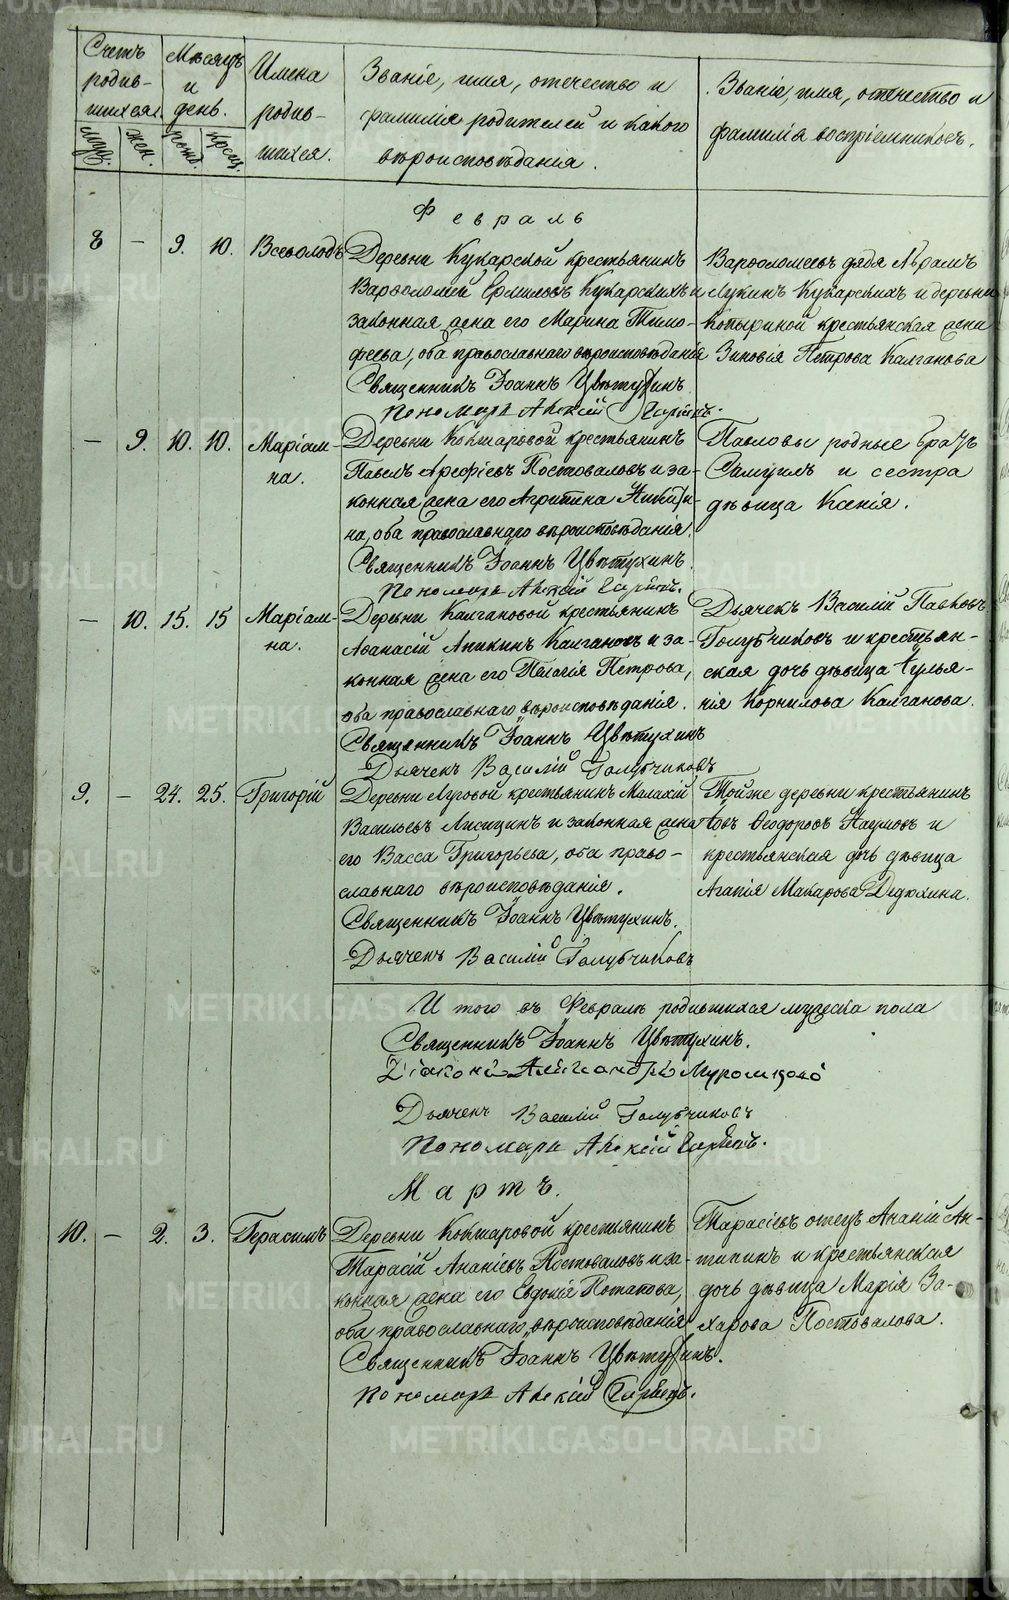 Счетъ родив-шихся.
муж.
жен.
Мѣсяцъ и день.
рожд.
крещ.
Имена родив-шихся.
Званіе, имя, отчество и
фамилія родителей и какого
вѣроисповѣданія.
Званіе, имя, отчество и
фамилія воспріемниковъ.
Февраль
8 — 9. 10. Всеволодъ
Деревни Кукарской крестьянинъ
Варѳоломей Ермиловъ Кукарскихъ и
законная жена его Марина Тимо-
феева, оба православнаго вѣроисповѣданія
Священникъ Іоаннъ Цвѣтухинъ
Пономарь Алексій
Варѳоломеевъ дядя Абрамъ
Лукинъ Кукарскихъ и деревни
Копыриной крестьянская жена
Зиновія Петрова Калганова
— 9. 10. 10. Маріам-
на.
Деревни Кокшаровой крестьянинъ
Павелъ Арефіевъ Постоваловъ и за-
конная жена его Агрипина Никити-
на, оба православнаго вѣроисповѣданія.
Священникъ Іоаннъ Цвѣтухинъ.
Пономарь Алексій
Павловы родные братъ
Самуилъ и сестра
дѣвица Ксенія.
— 10. 15. 15 Маріам-
на.
Деревни Калгановой крестьянинъ
Аѳанасій Аникинъ Калгановъ и за-
конная жена его Пелагія Петрова,
оба православнаго вѣроисповѣданія.
Священникъ Іоаннъ Цвѣтухинъ
Дьячекъ Василій Голубчиковъ
Дьячекъ Василій Павловъ
Голубчиковъ и крестьян-
ская дочь дѣвица Іулья-
нія Корнилова Калганова.
9. — 24. 25. Григорій
Деревни Луговой крестьянинъ Малахій
Васильевъ Лисицинъ и законная жена
его Васса Григорьева, оба право-
славнаго вѣроисповѣданія.
Священникъ Іоаннъ Цвѣтухинъ.
Дьячекъ Василій Голубчиковъ
Тойже деревни крестьянинъ
Іовъ Ѳеодоровъ Наумовъ и
крестьянская дочь дѣвица
Агапія Макарова Дедюхина.
Итого въ Февралѣ родившихся мужеска пола
Священникъ Іоаннъ Цвѣтухинъ.
Діаконъ Александръ
Дьячекъ Василій Голубчиковъ
Пономарь Алексій
Мартъ.
10. — 2. 3. Герасимъ
Деревни Кокшаровой крестьянинъ
Тарасій Ананіевъ Постоваловъ и за-
конная жена его Евдокія Потапова,
оба православнаго вѣроисповѣданія
Священникъ Іоаннъ Цвѣтухинъ.
Пономарь Алексій
Тарасіевъ отецъ Ананій Ан-
типинъ и крестьянская
дочь дѣвица Марія За-
харова Постовалова.
METRIKI.GASO-URAL.RU